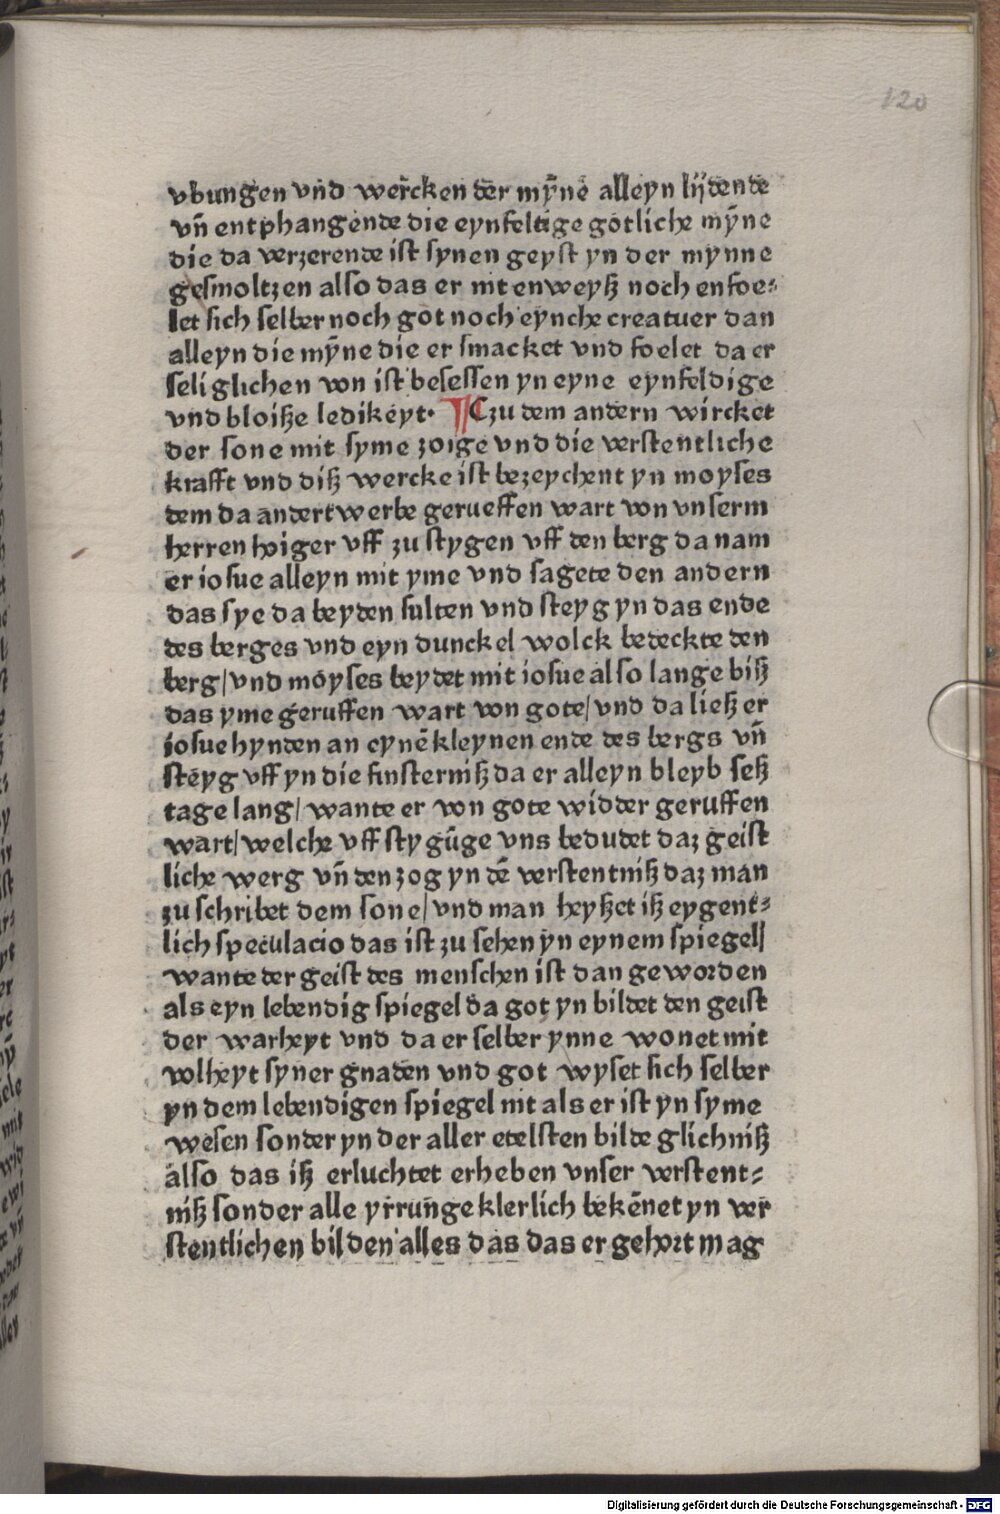 120
vbungen vnd wercken der mỹnē alleyn lijdende
vñ entphangende die eynfeltige gotliche mỹne
die da verzerende ist synen geyst yn der mynne
gesmoltzen also das er nit enweyß noch enfoe⸗
let sich selber noch got noch eynche creatuer dan
alleyn die mỹne die er smacket vnd foelet da er
seliglichen von ist besessen yn eyne eynfeldige
vnd bloiße ledikeyt· ¶ Czu dem andern wircket
der sone mit syme zoige vnd die verstentliche
krafft vnd diß wercke ist bezeychent yn moyses
dem da andertwerbe gerueffen wart von vnserm
herren hoiger vff zu stygen vff den berg da nam
er iosue alleyn mit yme vnd sagete den andern
das sye da beyden sulten vnd steyg yn das ende
des berges vnd eyn dunckel wolck bedeckte den
berg/vnd moyses beydet mit iosue also lange biß
das yme geruffen wart von gote/vnd da ließ er
iosue hynden an eynē kleynen ende des bergs vñ
steyg vff yn die finsterniß da er alleyn bleyb seß
tage lang/wante er von gote widder geruffen
wart/welche vff stygūge vns bedudet daz geist
liche werg vñ den zog yn dē verstentniß daz man
zu schribet dem sone/vnd man heyßet iß eygent⸗
lich speculacio das ist zu sehen yn eynem spiegel/
wante der geist des menschen ist dan geworden
als eyn lebendig spiegel da got yn bildet den geist
der warheyt vnd da er selber ynne wonet mit
volheyt syner gnaden vnd got wyset sich selber
yn dem lebendigen spiegel nit als er ist yn syme
wesen sonder yn der aller etelsten bilde glichniß
also das iß erluchtet erheben vnser verstent⸗
niß sonder alle yrrunge klerlich bekēnet yn ver
stentlichen bilden alles das das er gehort mag
Digitalisierung gefördert durch die Deutsche Forschungsgemeinschaft - DFG